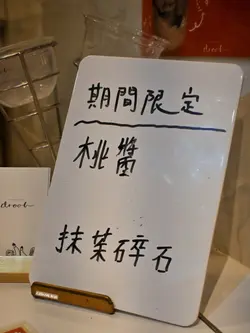 期間限定
桃醬
抹茶碎石